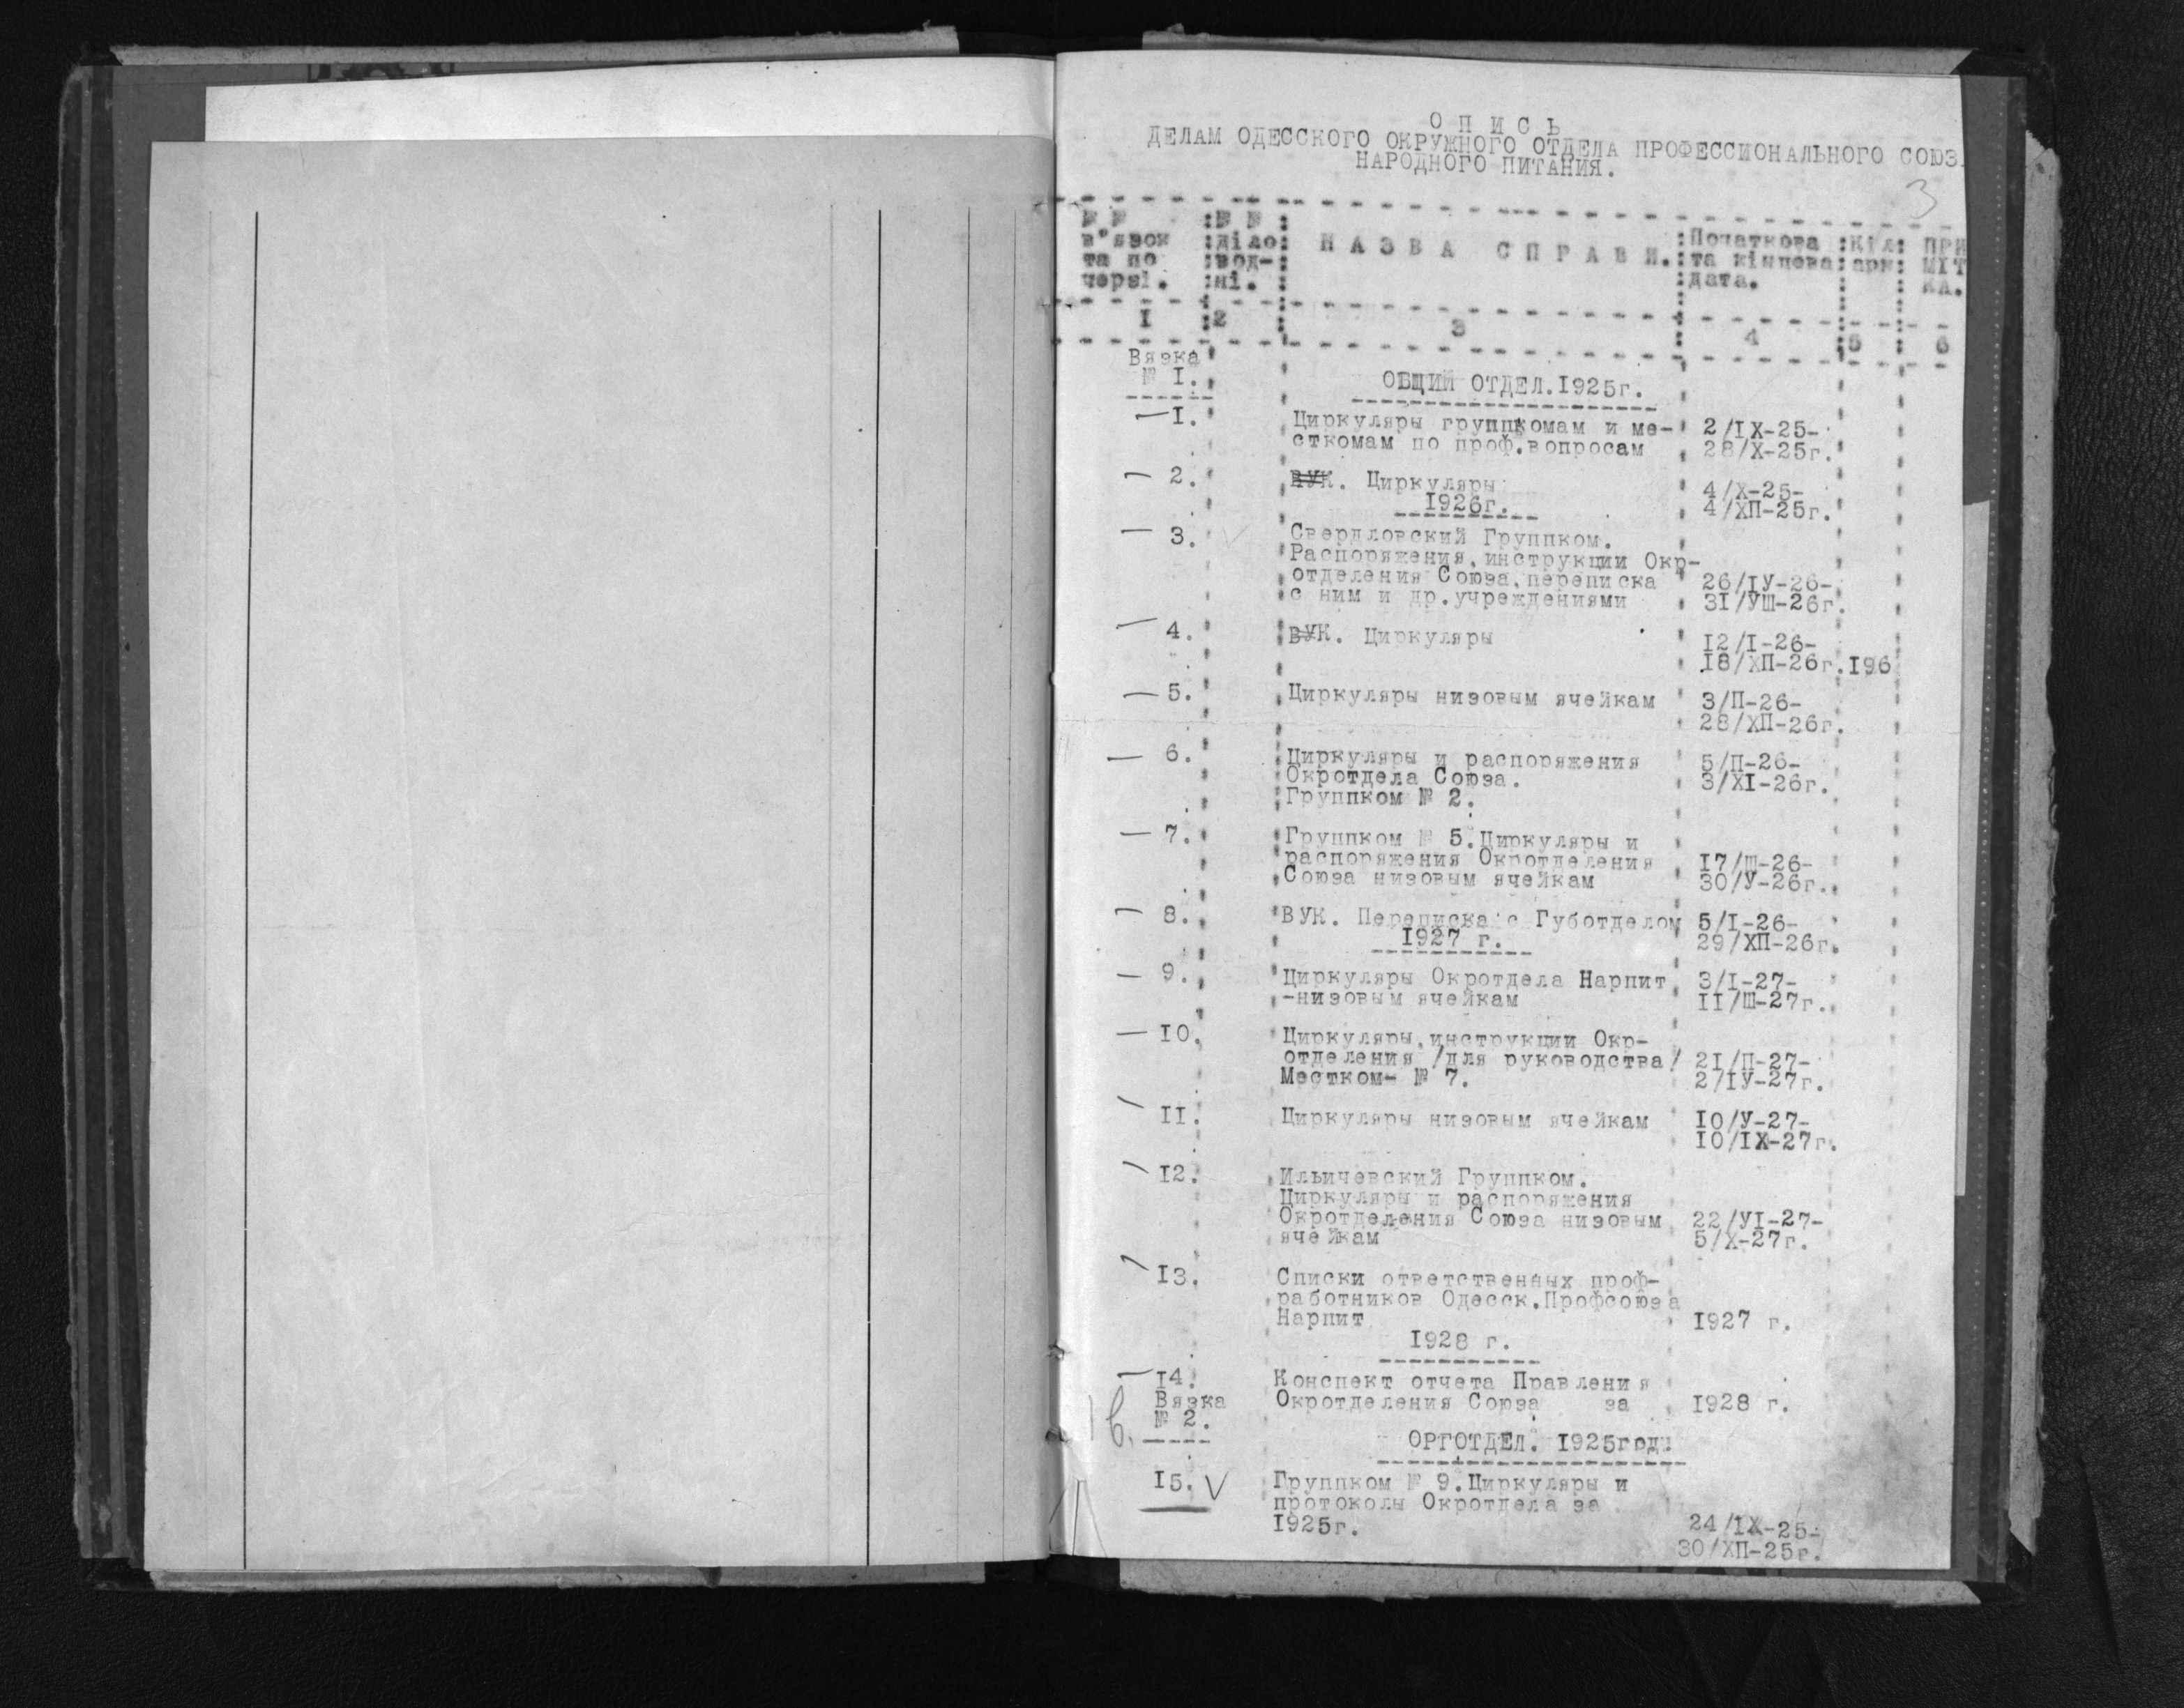 О П И С Ь
ДЕЛАМ ОДЕССКОГО ОКРУЖНОГО ОТДЕЛА ПРОФЕССИОНАЛЬНОГО СОЮЗ
НАРОДНОГО ПИТАНИЯ.
3
№ № в'язок та по черзі. № № діловодні. НАЗВА СПРАВИ. Початкова та кінцева дата. Кіл. арк. ПРИМІТКА.
1 2 3 4 5 6
Вязка
№ 1. ОБЩИЙ ОТДЕЛ.1925г.
1. Циркуляры группкомам и ме- 2/IX-25-
сткомам по проф.вопросам 28/X-25г.
2. ВУК. Циркуляры 4/X-25-
1926г. 4/ХП-25г.
3. Свердловский Группком.
Распоряжения,инструкции Окр-
отделения Союза,переписка 26/IУ-26-
с ним и др.учреждениями 31/УШ-26г.
4. ВУК. Циркуляры 12/I-26-
18/ХП-26г.196
5. Циркуляры низовым ячейкам 3/П-26-
28/ХП-26г.
6. Циркуляры и распоряжения 5/П-26-
Окротдела Союза. 3/XI-26г.
Группком № 2.
7. Группком № 5.Циркуляры и
распоряжения Окротделения 17/Ш-26-
Союза низовым ячейкам 30/У-26г.
8. ВУК. Переписка с Губотделом 5/I-26-
1927 г. 29/ХП-26г.
9. Циркуляры Окротдела Нарпит 3/I-27-
-низовым ячейкам 11/Ш-27г.
10. Циркуляры,инструкции Окр-
отделения /для руководства/ 21/П-27-
Местком- № 7. 2/IУ-27г.
11. Циркуляры низовым ячейкам 10/У-27-
10/IX-27г.
12. Ильичевский Группком.
Циркуляры и распоряжения
Окротделения Союза низовым 22/УI-27-
ячейкам 5/X-27г.
13. Списки ответственных проф-
работников Одесск.Профсоюза
Нарпит 1927 г.
1928 г.
14. Конспект отчета Правления
Вязка Окротделения Союза за 1928 г.
№ 2.
ОРГОТДЕЛ. 1925год.
15. V Группком № 9.Циркуляры и
протоколы Окротдела за
1925г. 24/IX-25-
30/ХП-25г.